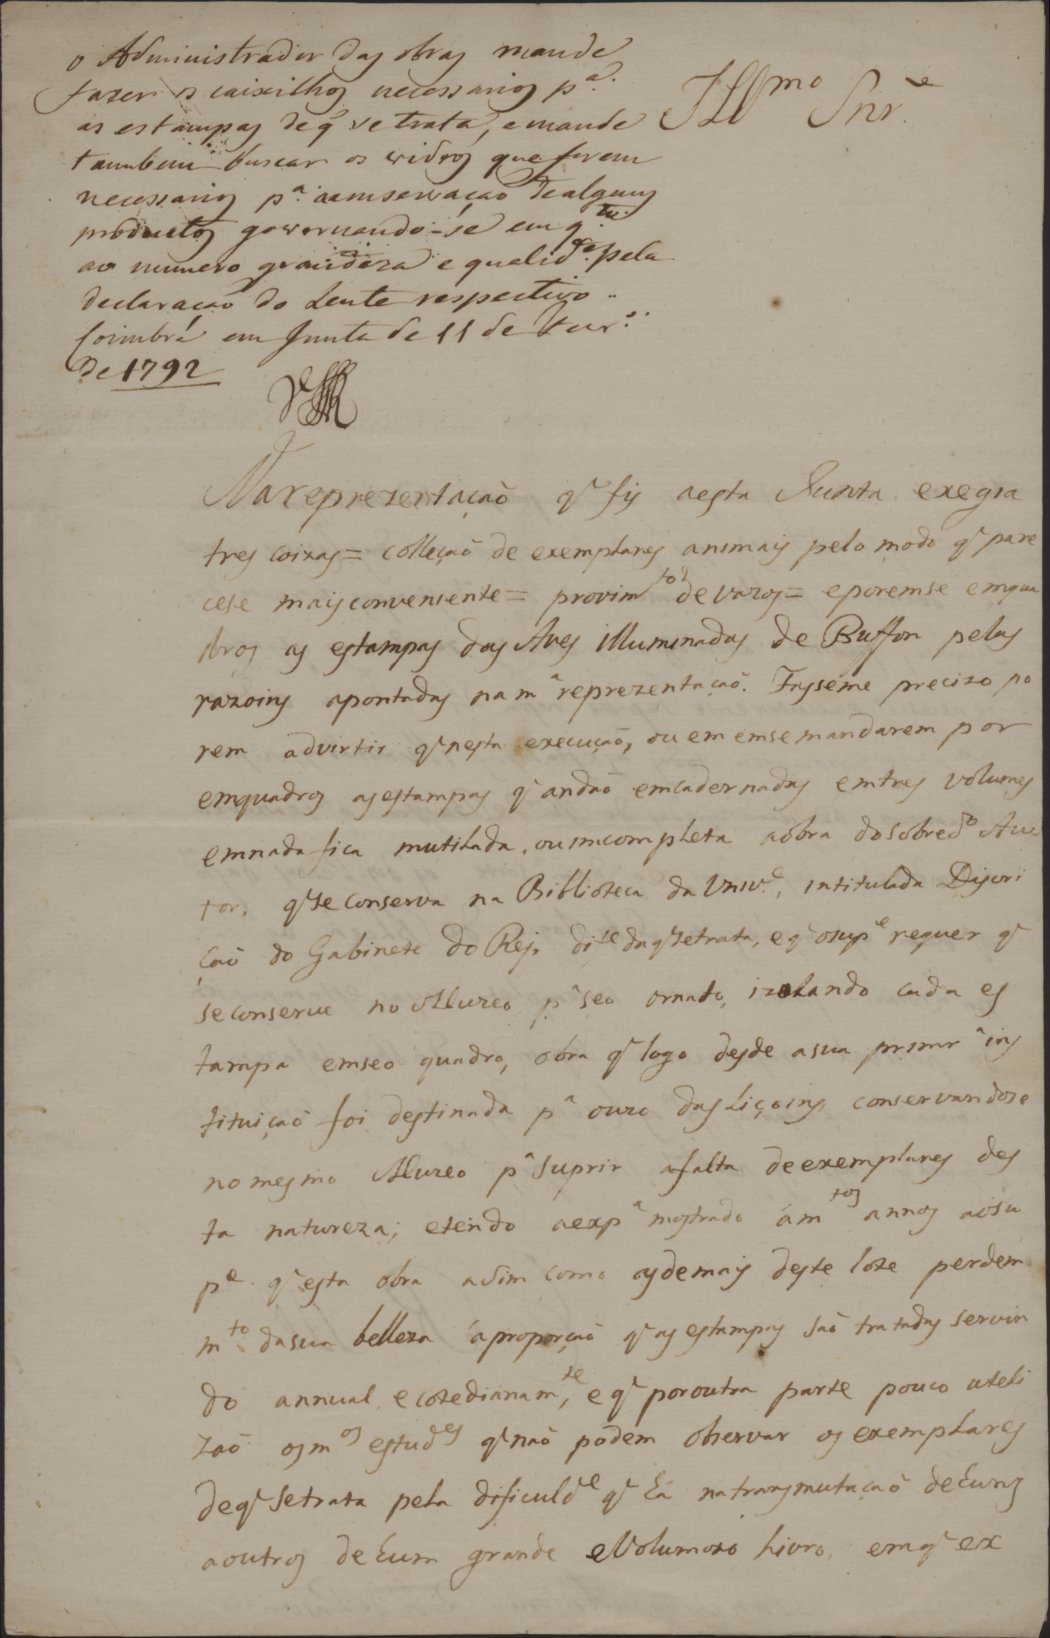 o Administrador das obras mande
fazer os caixilhos necessarios p.ª
as estampas de q̃ se trata, e mande
tambem buscar os vidros que forem
necessarios p.ª a conservação de alguns
productos governando-se em q.to
ao numero grandeza e qualid.e pela
declaração do Lente respectivo..
Coimbra em Junta de 11 de Fevr.º
de 1792
Ill.mo Snr.e
Na reprezentação q̃ fis a esta Junta exegia
tres coizas = colleção de exemplares animais pelo modo q̃ pare
cese mais conveniente = provim.tos de vazos = e poremse em qua
dros as estampas das Aves illuminadas de Buffon pelas
razoins apontadas na m.ª reprezentação. Fasseme precizo po
rem advirtir q̃ nesta execução, ou em emse mandarem por
em quadros as estampas q̃ andão emcadernadas em tres volumes
em nada fica mutilada, ou imcompleta a obra do sobred.º Auc
tor, q̃ se conserva na Biblioteca da Univ.e, intitulada Discri
ção do Gabinete do Rej, dis.te da q̃ se trata, e q̃ o sup.e requer q̃
se conserve no Muzeo p.ª seo ornato, izolando cada es
tampa em seo quadro, obra q̃ logo desde a sua primr.ª ins
tituição foi destinada p.ª o uzo das Liçoins conservandose
no mesmo Muzeo p.ª suprir a falta de exemplares des
ta natureza; e tendo a exp.ª mostrado á m.tos annos ao su
p.e q̃ esta obra asim como as demais deste lote perdem
m.to da sua belleza á proporção q̃ as estampas são tratadas servin
do annual, e cotedianam.te, e q̃ por outra parte pouco uteli
zão os m.os estud.es q̃ não podem observar os exemplares
de q̃ se trata pela dificuld.e q̃ há na transmutação de huns
a outros de hum grande e volumozo livro, em q̃ ex